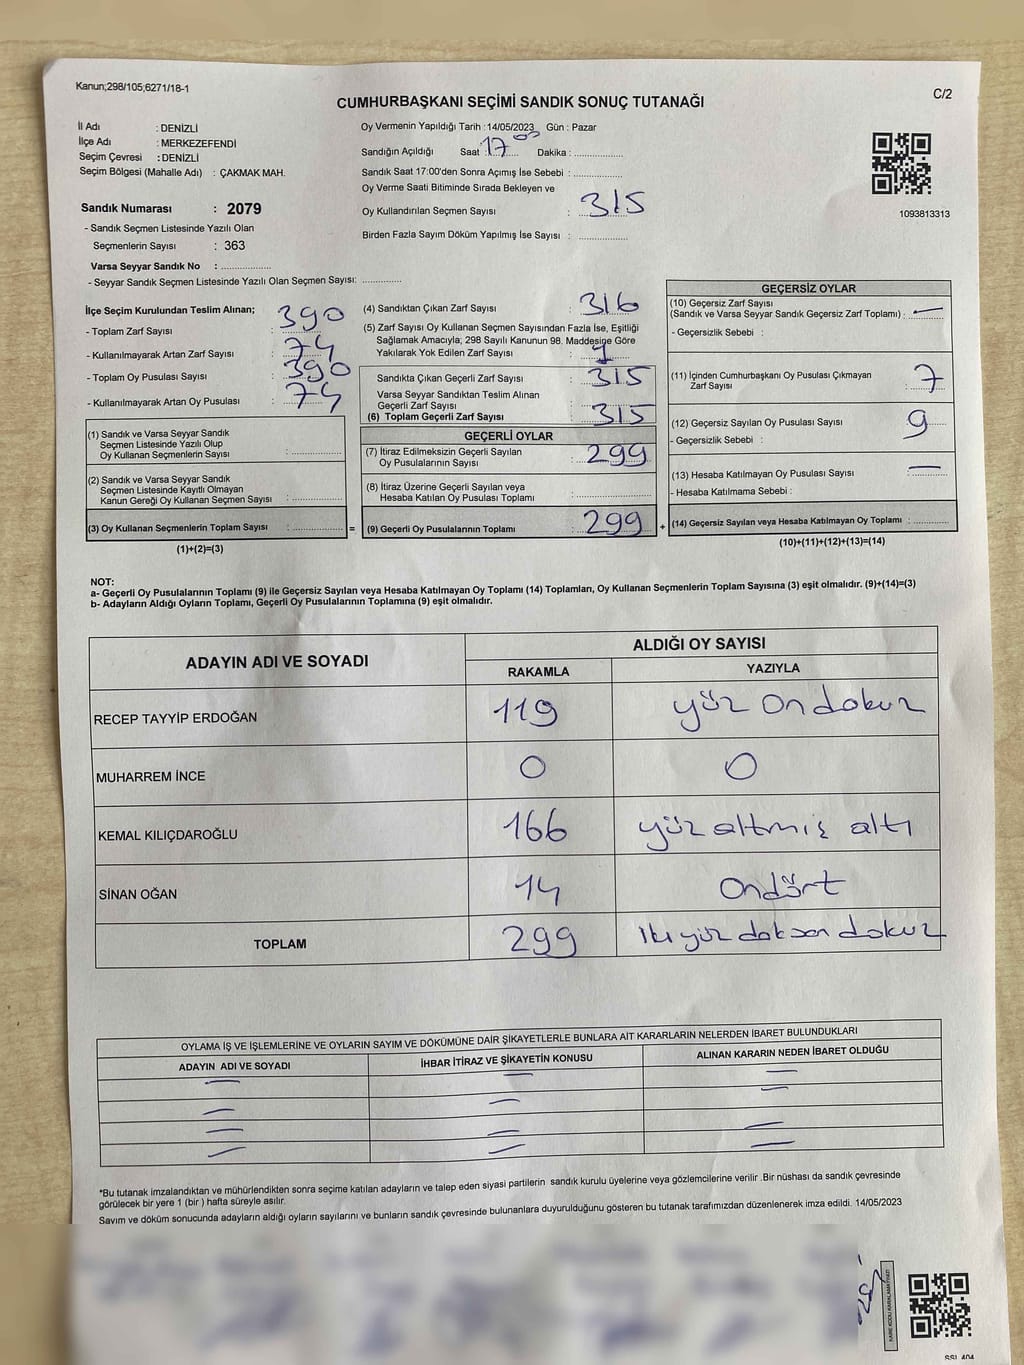 Kanun;298/105,6271/18-1
C/2
CUMHURBAŞKANI SEÇİMİ SANDIK SONUÇ TUTANAĞI
İl Adı : DENİZLİ
İlçe Adı : MERKEZEFENDİ
Seçim Çevresi : DENİZLİ
Seçim Bölgesi (Mahalle Adı) : ÇAKMAK MAH.
Sandık Numarası : 2079
- Sandık Seçmen Listesinde Yazılı Olan
Seçmenlerin Sayısı : 363
Varsa Seyyar Sandık No : ..................
- Seyyar Sandık Seçmen Listesinde Yazılı Olan Seçmen Sayısı: ..............
Oy Vermenin Yapıldığı Tarih :14/05/2023 Gün : Pazar
Sandığın Açıldığı Saat : 17 00 Dakika : ..................
Sandık Saat 17:00'den Sonra Açımış İse Sebebi : ..................
Oy Verme Saati Bitiminde Sırada Bekleyen ve
Oy Kullandırılan Seçmen Sayısı : 315
Birden Fazla Sayım Döküm Yapılmış İse Sayısı : ..................
1093813313
İlçe Seçim Kurulundan Teslim Alınan;
- Toplam Zarf Sayısı : 390
- Kullanılmayarak Artan Zarf Sayısı : 74
- Toplam Oy Pusulası Sayısı : 390
- Kullanılmayarak Artan Oy Pusulası : 74
(1) Sandık ve Varsa Seyyar Sandık
Seçmen Listesinde Yazılı Olup
Oy Kullanan Seçmenlerin Sayısı : ..............
(2) Sandık ve Varsa Seyyar Sandık
Seçmen Listesinde Kayıtlı Olmayan
Kanun Gereği Oy Kullanan Seçmen Sayısı : ..............
(3) Oy Kullanan Seçmenlerin Toplam Sayısı : .............. =
(1)+(2)=(3)
(4) Sandıktan Çıkan Zarf Sayısı : 316
(5) Zarf Sayısı Oy Kullanan Seçmen Sayısından Fazla İse, Eşitliği
Sağlamak Amacıyla; 298 Sayılı Kanunun 98. Maddesine Göre
Yakılarak Yok Edilen Zarf Sayısı : 1
Sandıkta Çıkan Geçerli Zarf Sayısı : 315
Varsa Seyyar Sandıktan Teslim Alınan
Geçerli Zarf Sayısı : ..............
(6) Toplam Geçerli Zarf Sayısı : 315
GEÇERLİ OYLAR
(7) İtiraz Edilmeksizin Geçerli Sayılan
Oy Pusulalarının Sayısı : 299
(8) İtiraz Üzerine Geçerli Sayılan veya
Hesaba Katılan Oy Pusulası Toplamı : ..............
(9) Geçerli Oy Pusulalarının Toplamı : 299 +
GEÇERSİZ OYLAR
(10) Geçersiz Zarf Sayısı
(Sandık ve Varsa Seyyar Sandık Geçersiz Zarf Toplamı) : —
- Geçersizlik Sebebi :
(11) İçinden Cumhurbaşkanı Oy Pusulası Çıkmayan
Zarf Sayısı : 7
(12) Geçersiz Sayılan Oy Pusulası Sayısı : 9
- Geçersizlik Sebebi :
(13) Hesaba Katılmayan Oy Pusulası Sayısı : —
- Hesaba Katılmama Sebebi :
(14) Geçersiz Sayılan veya Hesaba Katılmayan Oy Toplamı : ............
(10)+(11)+(12)+(13)=(14)
NOT:
a- Geçerli Oy Pusulalarının Toplamı (9) ile Geçersiz Sayılan veya Hesaba Katılmayan Oy Toplamı (14) Toplamları, Oy Kullanan Seçmenlerin Toplam Sayısına (3) eşit olmalıdır. (9)+(14)=(3)
b- Adayların Aldığı Oyların Toplamı, Geçerli Oy Pusulalarının Toplamına (9) eşit olmalıdır.
ADAYIN ADI VE SOYADI ALDIĞI OY SAYISI
RAKAMLA YAZIYLA
RECEP TAYYİP ERDOĞAN 119 yüz On dokuz
MUHARREM İNCE 0 0
KEMAL KILIÇDAROĞLU 166 yüz altmış altı
SİNAN OĞAN 14 Ondört
TOPLAM 299 iki yüz doksan dokuz
OYLAMA İŞ VE İŞLEMLERİNE VE OYLARIN SAYIM VE DÖKÜMÜNE DAİR ŞİKAYETLERLE BUNLARA AİT KARARLARIN NELERDEN İBARET BULUNDUKLARI
ADAYIN ADI VE SOYADI İHBAR İTİRAZ VE ŞİKAYETİN KONUSU ALINAN KARARIN NEDEN İBARET OLDUĞU
*Bu tutanak imzalandıktan ve mühürlendikten sonra seçime katılan adayların ve talep eden siyasi partilerin sandık kurulu üyelerine veya gözlemcilerine verilir .Bir nüshası da sandık çevresinde
görülecek bir yere 1 (bir ) hafta süreyle asılır.
Sayım ve döküm sonucunda adayların aldığı oyların sayılarını ve bunların sandık çevresinde bulunanlara duyurulduğunu gösteren bu tutanak tarafımızdan düzenlenerek imza edildi. 14/05/2023